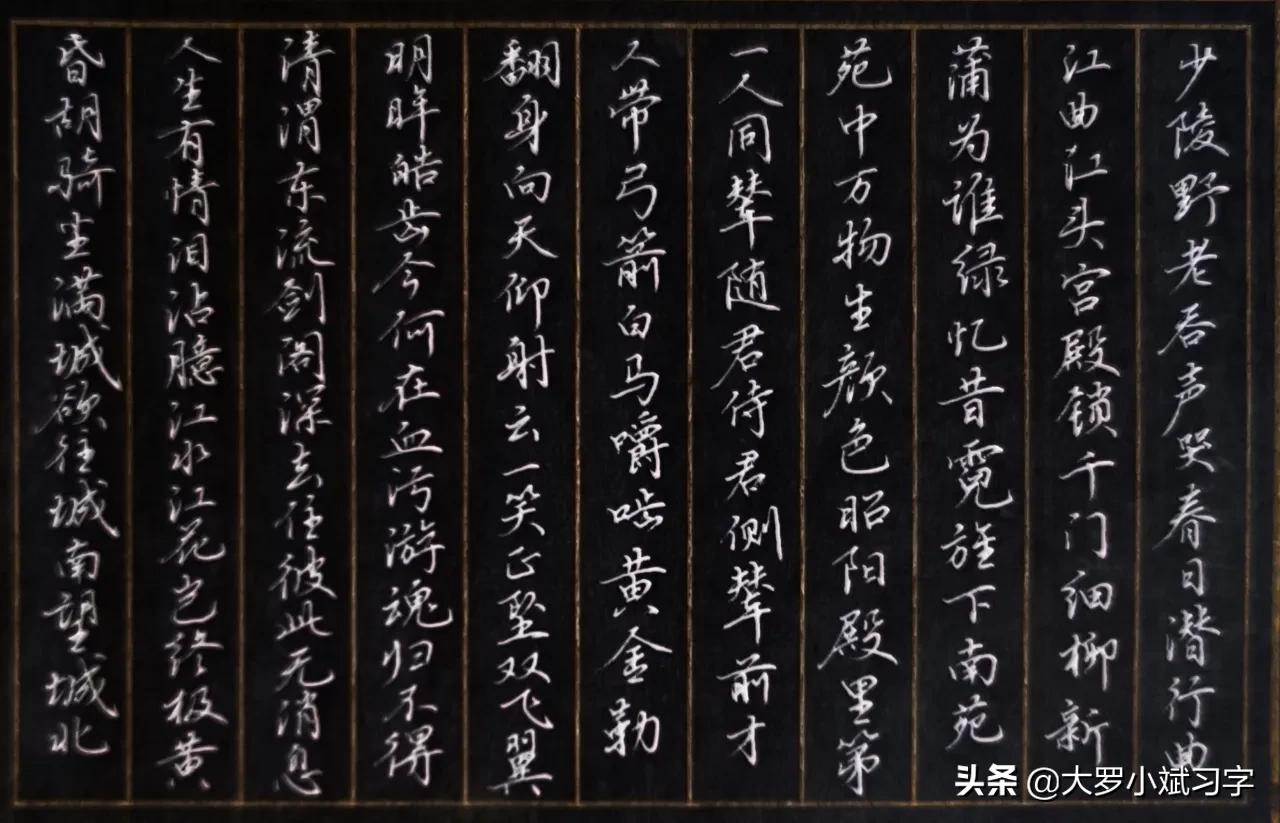 少陵野老吞声哭春日潜行曲
江曲江头宫殿锁千门细柳新
蒲为谁绿忆昔霓旌下南苑
苑中万物生颜色昭阳殿里第
一人同辇随君侍君侧辇前才
人带弓箭白马嚼啮黄金勒
翻身向天仰射云一笑正坠双飞翼
明眸皓齿今何在血污游魂归不得
清渭东流剑阁深去住彼此无消息
人生有情泪沾臆江水江花岂终极黄
昏胡骑尘满城欲往城南望城北
头条 @大罗小斌习字